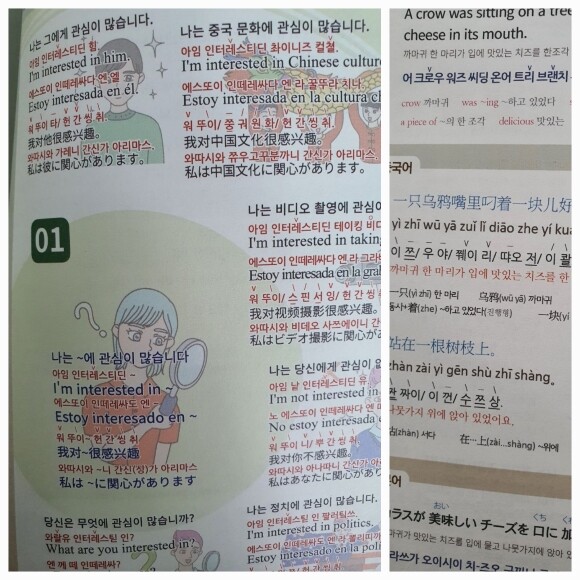 나는 그에게 관심이 많습니다.
아임 인터레스티딘 힘.
I'm interested in him.
에스또이 인떼레싸다 엔 엘
Estoy interesada en él.
워 뚜이 타/ 헌 간 씽 취.
我对他很感兴趣。
와따시와 가레니 간신가 아리마스.
私は彼に関心があります。
나는 중국 문화에 관심이 많습니다.
아임 인터레스티딘 화이니즈 컬철.
I'm interested in Chinese culture
에스또이 인떼레싸다 엔 라 꿀뚜라 치나
Estoy interesada en la cultura ch
워 뚜이/ 쭝 궈 원 화/ 헌 간 씽 취.
我对中国文化很感兴趣。
와따시와 쮸우고꾸분까니 간신가 아리마스.
私は中国文化に関心があります。
01
나는 ~에 관심이 많습니다
아임 인터레스티딘 ~
I'm interested in ~
에스또이 인떼레싸도 엔 ~
Estoy interesado en ~
워 뚜이~ 헌 간 씽 취
我对~很感兴趣
와따시와 ~니 간신(싱)가 아리마스
私は ~に関心があります
나는 비디오 촬영에 관심이
아임 인터레스티딘 테이킹 비디
I'm interested in taking
에스또이 인떼레싸다 엔 라 그라
Estoy interesada en la gra
워 뚜이/ 스 핀 서 잉/ 헌 간
我对视频摄影很感兴趣。
와따시와 비데오 사쯔에이니 간
私はビデオ撮影に関心が
나는 당신에게 관심이 없
아임 낟 인터레스티딘 유.
I'm not interested in
노 에스또이 인떼레싸다 엔
No estoy interesada e
워 뚜이 니/ 뿌 간 씽 취
我对你不感兴趣。
와따시와 아나따니 간신가 아
私はあなたに関心があり
당신은 무엇에 관심이 많습니까?
와랄유 인터레스팉 인?
What are you interested in?
엔 께 떼 인떼레싸?
나는 정치에 관심이 많습니다.
아임 인터레스팉 인 팔러틱쓰.
I'm interested in politics.
에스또이 인떼레싸도 엔 라 뽈리띠까
Estoy interesado en la polí
워 뚜이
A crow was sitting on a tree
cheese in its mouth.
까마귀 한 마리가 입에 맛있는 치즈를 한조각
어 크로우 워즈 씨딩 온어 트리 브랜치
crow 까마귀 was ~ing ~하고 있었다
a piece of ~의 한 조각 delicious 맛있는
국어
一只乌鸦嘴里叼着一块儿好
yì zhī wū yā zuǐ lǐ diāo zhe yí kuà
이 쯔/ 우 야/ 쮀이 리/ 땨오 저/ 이 콸
까마귀 한 마리가 입에 맛있는 치즈를 한
一只(yì zhī) 한 마리 乌鸦(wū yā) 까마귀
동사+着(zhe) ~하고 있었다(진행형) 一块(yí
站在一根树枝上。
zhàn zài yì gēn shù zhī shàng。
짠 짜이/ 이 껀/ 수 쯔 상.
나뭇가지 위에 앉아 있었어요.
站(zhàn) 서다 在…上(zài...shàng) ~위에
본어
おい くち くわ
カラスが 美味しい チーズを 口に 加
까마귀가 맛있는 치즈를 입에 물고 나뭇가지에 앉아 있
라쓰가 오이시이 치-즈오